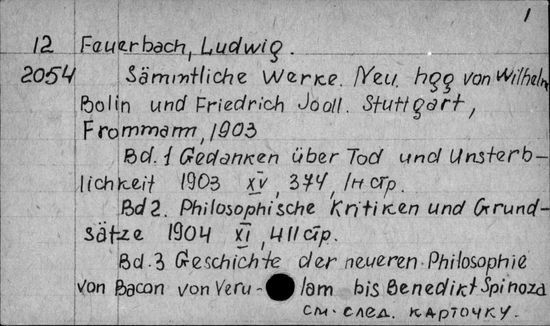 1
12 Feuerbach, Ludwig.
2054 Sämmtliche Werke. Neu. hgg von Wilhelm
Bolin und Friedrich Jodl. Stuttgart,
Frommann, 1903
Bd. 1 Gedanken über Tod und Unsterb-
lichkeit 1903 XV, 374, 1н стр.
Bd 2. Philosophische Kritiken und Grund-
sätze 1904 XI, 411 стр.
Bd. 3 Geschichte der neueren Philosophie
von Bacon von Veru- lam bis Benedikt Spinoza
см. след. карточку.